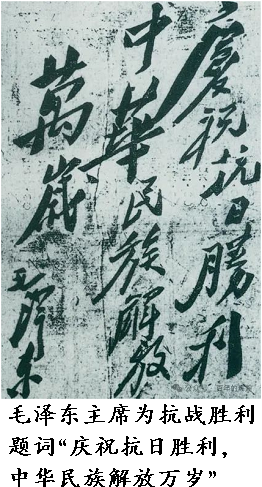 慶祝抗日勝利
中華民族解放
萬歲
毛澤东
毛泽东主席为抗战胜利
题词“庆祝抗日胜利，
中华民族解放万岁”